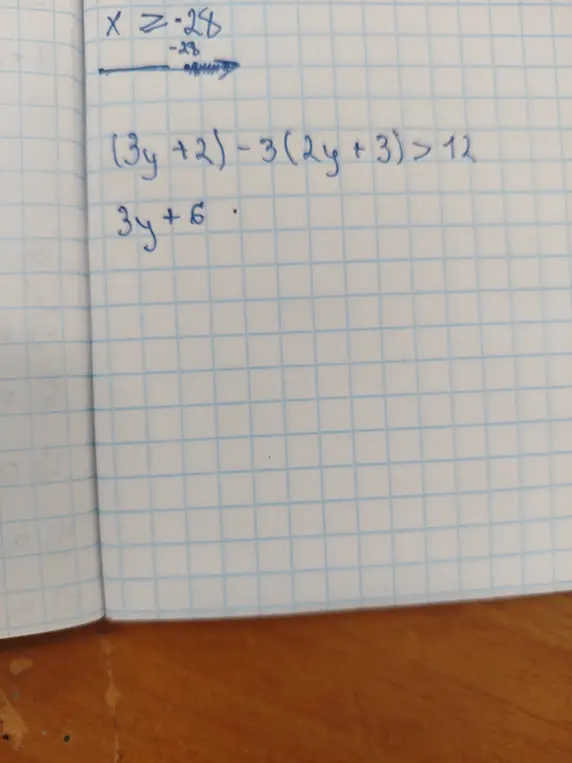 x ≥ -28
-28
(3y + 2) - 3(2y + 3) > 12
3y + 6 ·